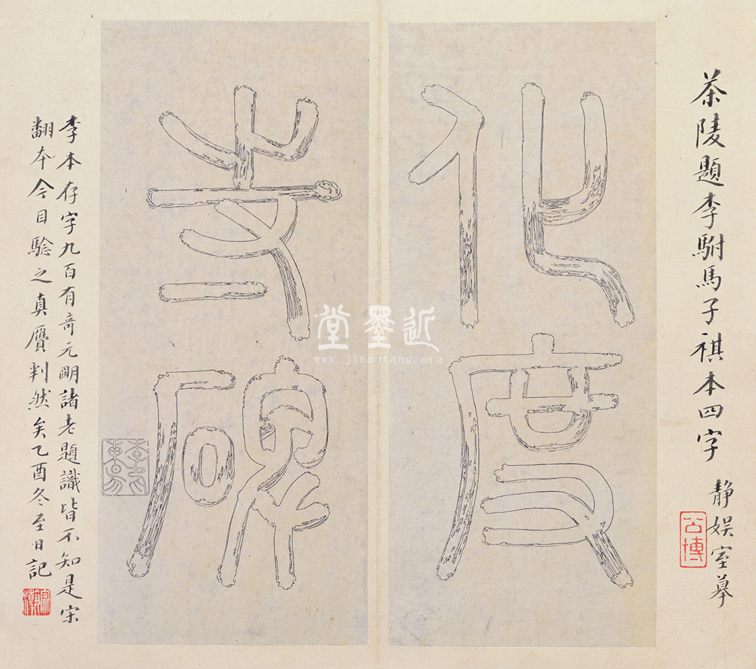 茶陵題李駙馬子祺本四字
静娱室摹
公博
化度
寺碑
李本存字九百有奇元明諸老題識皆不知是宋
翻本今目騐之真贋判然矣乙酉冬至日記
近墨堂
www.jinmotang.org